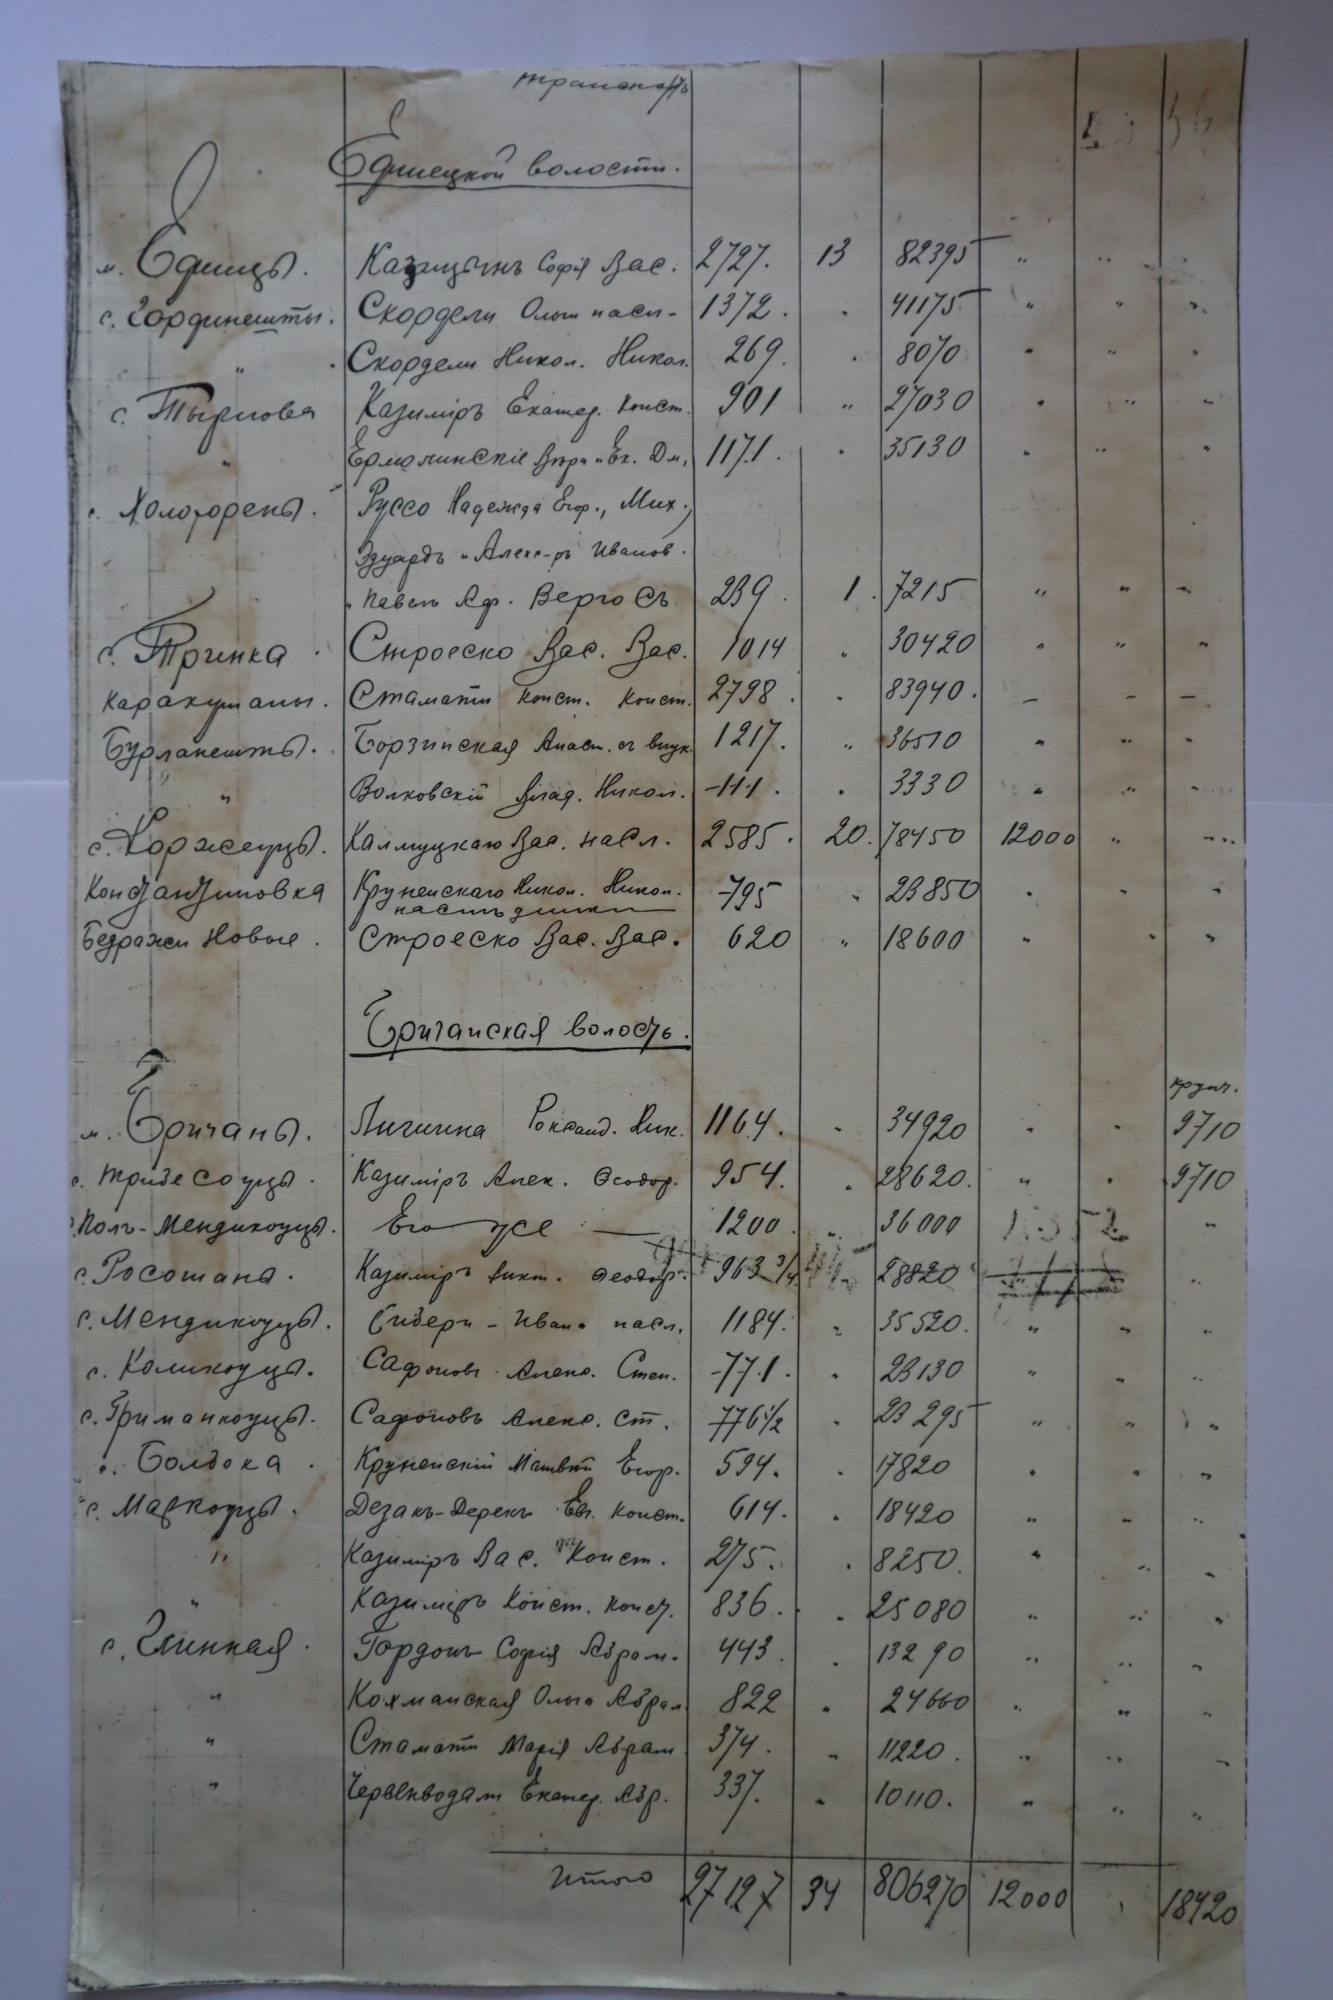 транспортъ
Единецкой волости.
м. Единцы. Казимиръ Софія Вас. 2727. 13 82395 " "
с. Гординешты. Скордели Ольги насл. 1372. " 41175 " " "
" Скордели Никол. Никол. 269. " 8070 " " "
с. Тырнова Казиміръ Екатер. Конст. 901 " 27030 " " "
" Ермолинскіе Вѣра и Ек. Дм. 1171. " 35130 " " "
с. Холохорены. Руссо Надежда Егор., Мих.,
Эдуардъ и Алекс-ръ Иванов.
и Павелъ Аф. Вергосъ 239. 1. 7215 " " "
с. Тринка. Строеско Вас. Вас. 1014 " 30420 " " "
Каракушаны. Стамати Конст. Конст. 2798. " 83940. – – –
Бурланешты. Борзинская Анаст. съ внук. 1217. " 36510 " " "
" Волковскій Влад. Никол. 111. " 3330 " " "
с. Коржеуцы. Калмуцкаго Вас. насл. 2585. 20. 78450 12000 " "
Константиновка Крупенскаго Никол. Никол. 795 " 23850 " " "
наслѣдники
Бедражи Новые. Строеско Вас. Вас. 620 " 18600 " " "
Бричанская волость.
м. Бричаны. Роксанд. Ник. 1164. " 34920 " "
9710
с. Требесоуцы. Казиміръ Алек. Ѳеодор. 954. " 28620. " " 9710
Полъ-Мендикоуцы. Его же — 1200. " 36000 "
с. Росошаны. Казиміръ Викт. Ѳеодор. 963 3/4 28820 "
с. Мендикоуцы. Ивана насл. 1184. " 35520. " " "
с. Коликоуцы. Сафоновъ Алекс. Степ. 771. " 23130 " " "
с. Гриманкоуцы. Сафоновъ Алекс. Ст. 776 1/2 " 23295 " " "
с. Болбока. Крупенскій Матвѣй Егор. 594. " 17820 " " "
с. Маркоуцы. Дезанъ-Дерекъ Ев. Конст. 614. " 18420 " " "
" Казиміръ Вас. Конст. 275. " 8250. " " "
" Казиміръ Конст. Конст. 836. " 25080 " " "
с. Глинкая. Гордонъ Софія Абрам. 443. " 13290 " " "
" Кохманская Ольга Абрам. 822 " 24660 " " "
" Стамати Марія Абрам. 374. " 11220. " " "
" Червенводали Екатер. Абр. 337. " 10110. " " "
Итого 27127 34 806270 12000 " 18420